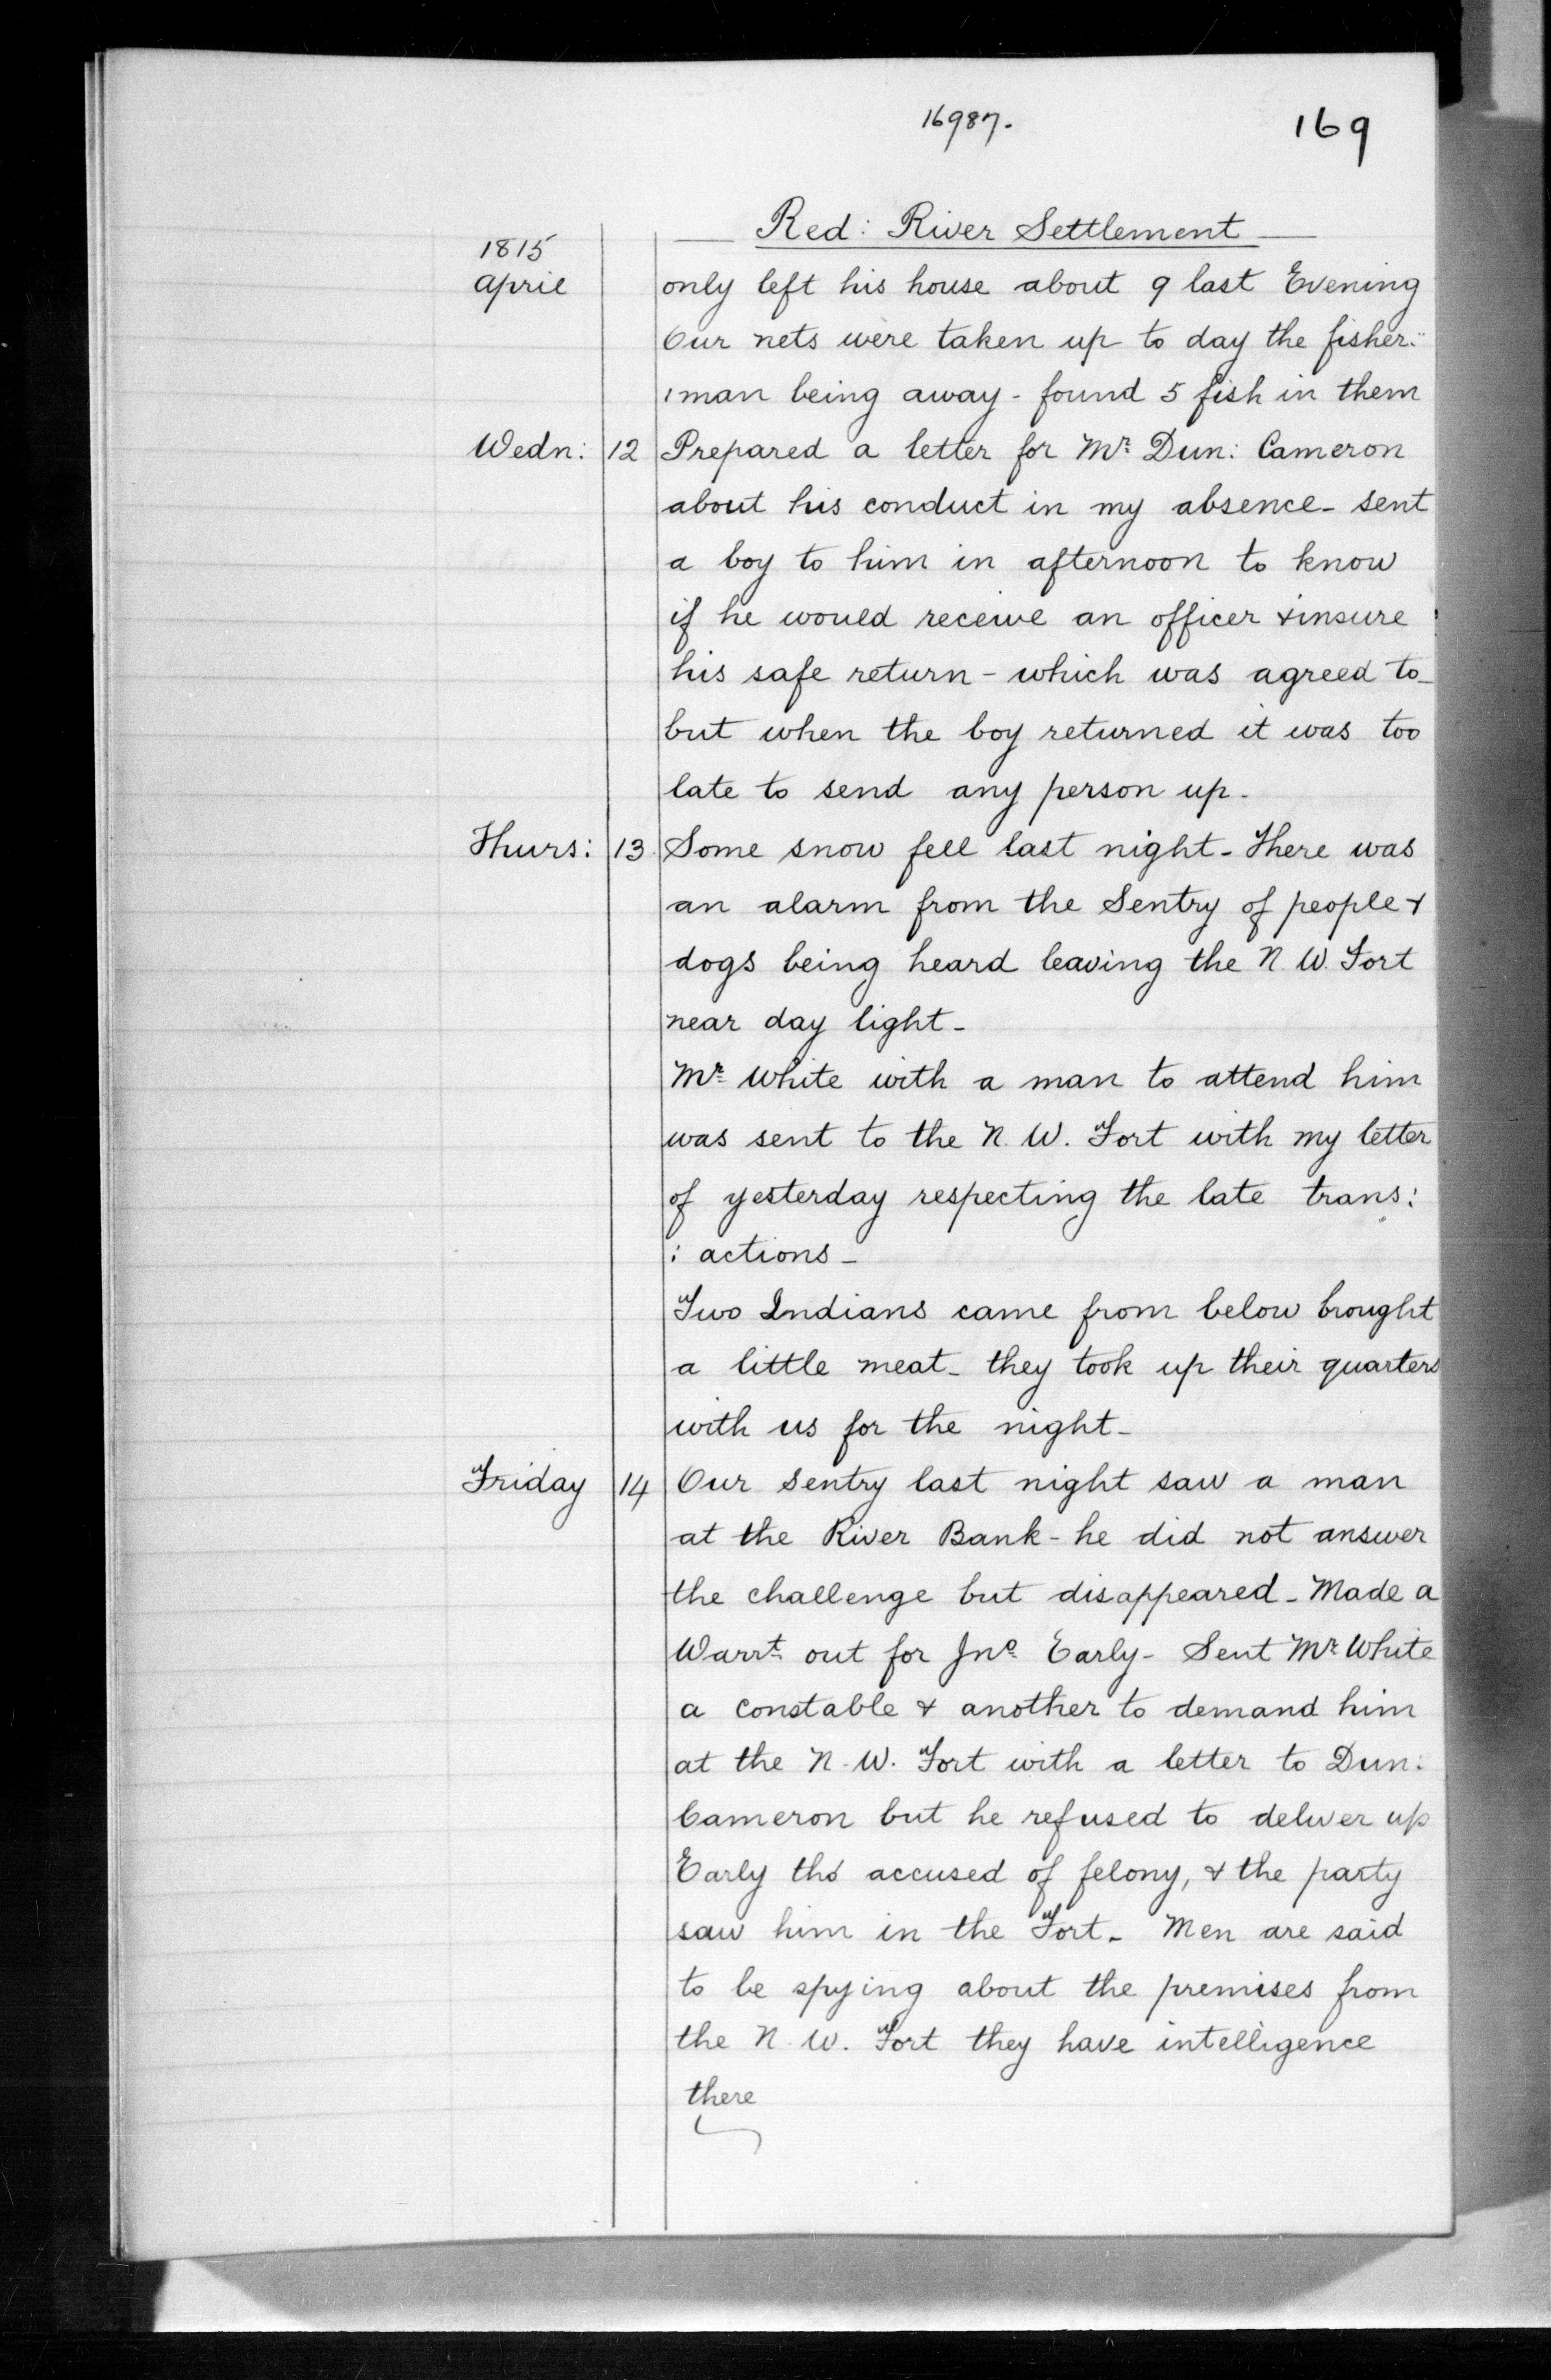 16987.
169
Red: River Settlement
1815
April
only left his house about 9 last Evening
Our nets were taken up to day the fisher:
:man being away - found 5 fish in them
Wedn: 12 Prepared a letter for Mr. Dun: Cameron
about his conduct in my absence - sent
a boy to him in afternoon to know
if he would receive an officer & insure
his safe return - which was agreed to -
but when the boy returned it was too
late to send any person up.
Thurs: 13. Some snow fell last night - There was
an alarm from the Sentry of people &
dogs being heard leaving the N. W. Fort
near day light -
Mr. White with a man to attend him
was sent to the N. W. Fort with my letter
of yesterday respecting the late trans:
: actions -
Two Indians came from below brought
a little meat - they took up their quarters
with us for the night -
Friday 14 Our Sentry last night saw a man
at the River Bank - he did not answer
the challenge but disappeared - Made a
Warrt. out for Jno. Early - Sent Mr. White
a constable & another to demand him
at the N. W. Fort with a letter to Dun:
Cameron but he refused to deliver up
Early tho' accused of felony, & the party
saw him in the Fort - Men are said
to be spying about the premises from
the N. W. Fort they have intelligence
there